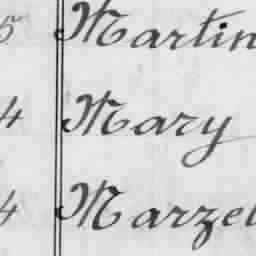 5 Martin
4 Mary
4 Marzel